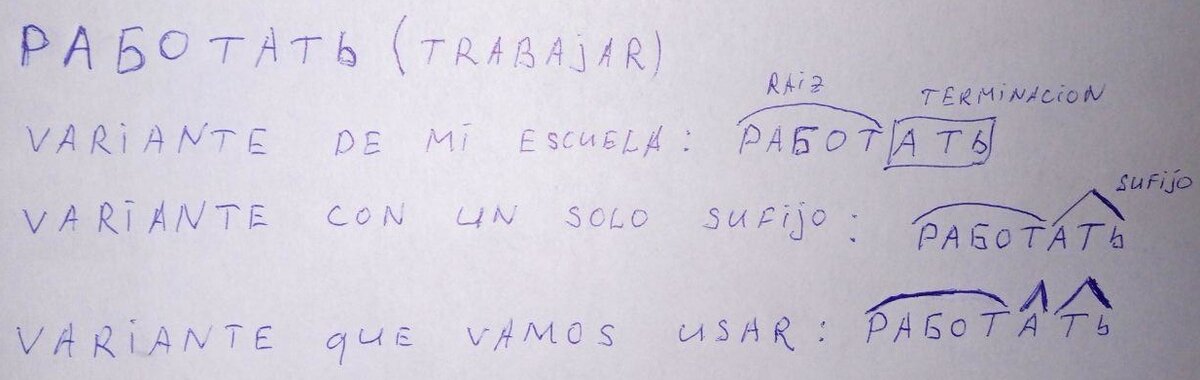 РАБОТАТЬ (TRABAJAR)
RAIZ TERMINACION
VARIANTE DE MI ESCUELA: РАБОТАТЬ
SUFIJO
VARIANTE CON UN SOLO SUFIJO: РАБОТАТЬ
VARIANTE QUE VAMOS USAR: РАБОТАТЬ